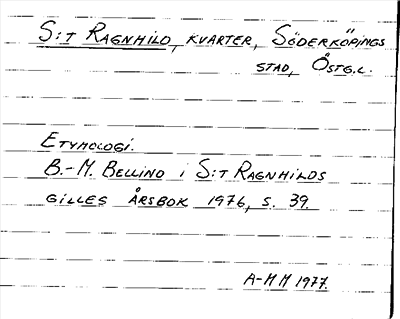 S:t Ragnhild, kvarter, Söderköpings
stad, Östg.l.
Etymologi.
B.-M. Bellind i S:t Ragnhilds
gilles årsbok 1976, s. 39.
A-MM 1977.